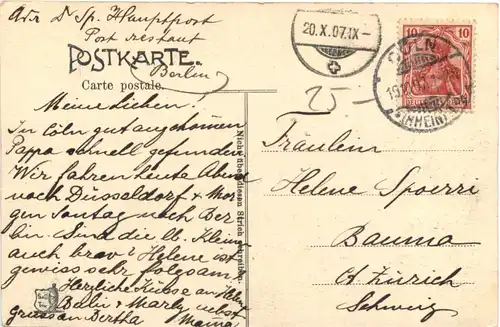 Adr Dr Sp. Hauptpost
Post restant
(Berlin)
POSTKARTE.
Carte postale.
20.X.07.IX-
CÖLN
(RHEIN)
10 10
25.-
Meine Lieben!
In Cöln gut angekommen
Pappa schnell gefunden
Wir fahren heute Abend
nach Düsseldorf & Mor-
gen Sontag nach Ber-
lin. Sind die lb. Kleinen
auch brav? Helene ist
gewiss sehr folgsam?
Herzliche Küsse an Helen
Balu & Marly nebst
grüssen an Bertha Mama
Nicht über diesen Strich schreiben.
Fräulein
Helene Spoerri
Bauma
Ct Zürich
Schweiz